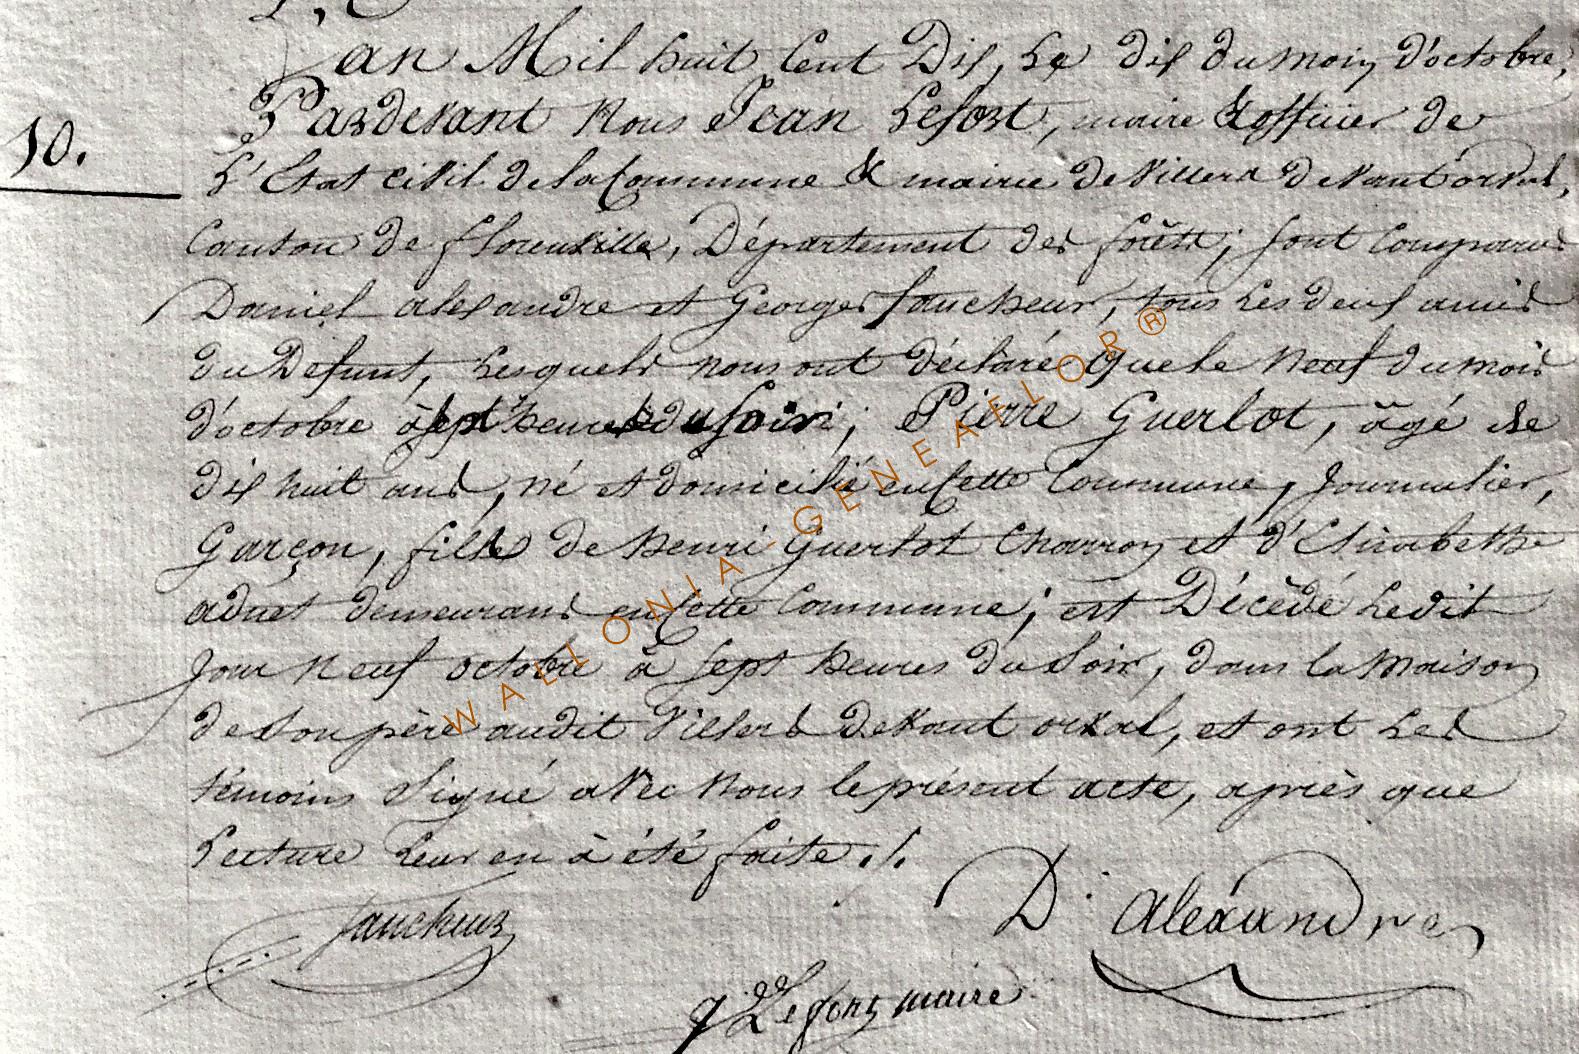 L'an Mil huit Cent Dix, Le dix du mois d'octobre,
Pardevant Nous Jean Lefort, maire & officier de
10.
L'Etat civil de la Commune & mairie de Villers devant orval,
Canton de florenville, Département des forêts; sont Comparus
Daniel alexandre et Georges faucheur, tous Les deux amis
du Defunt, Lesquels nous ont déclaré que le Neuf du mois
d'octobre à sept heures du soir; Pierre Guerlot, âgé de
dix huit ans, né et domicilié en Cette Commune, Journalier,
Garçon, fils de henri Guerlot Charron et d'Elizabethe
adnet demeurans en Cette Commune; est Décédé Ledit
Jour Neuf octobre à sept heures du Soir, dans la Maison
de Son père audit Villers devant orval, et ont Les
témoins Signé avec Nous le présent acte, après que
Lecture Leur en à été faite ./.
faucheur
D. alexandre
J Lefort maire
WALLONIA-GENEAFLOR®